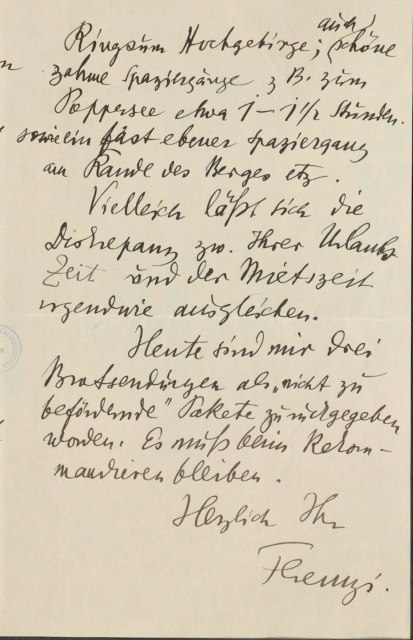 auch
Ringsum Hochgebirge; schöne
zahme Spaziergänge z B. zum
Poppersee etwa 1 – 1 1/2 Stunden.
sowie ein fast ebener Spaziergang
am Rande des Berges etz.
Vielleich läßt sich die
Diskrepanz zw. Ihrer Urlaubs
Zeit und der Mietszeit
irgendwie ausgleichen.
Heute sind mir drei
Brotsendungen als „nicht zu
befördernde" Pakete zurückgegeben
worden. Es muß beim Rekom-
mandieren bleiben.
Herzlich Ihr
Ferenczi.